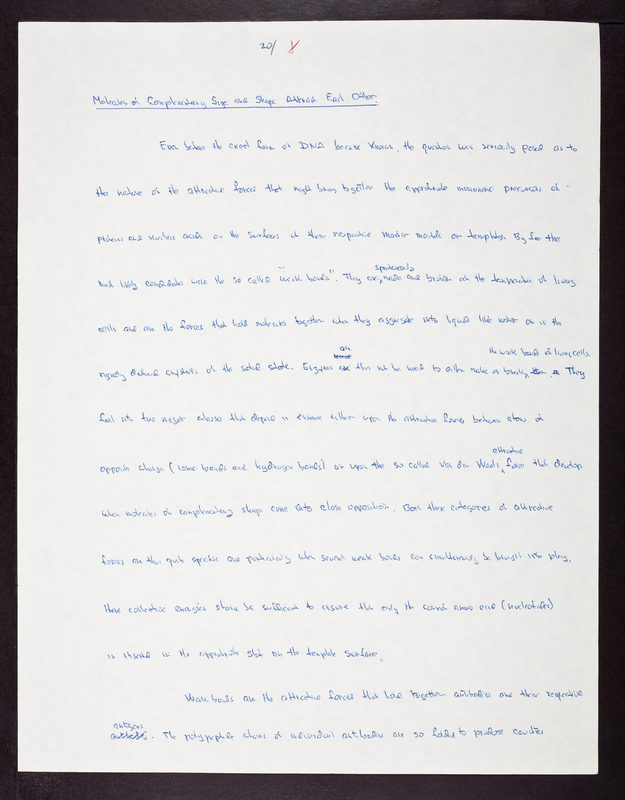 20/
Molecules of Complementary Size and Shape Attract Each Other
Even before the exact form of DNA became known, the question was seriously posed as to
the nature of the attractive forces that might bring together the appropriate monomeric precursors of
proteins and nucleic acids on the surfaces of their respective master models or templates. By far the
most likely candidates were the so called "weak bonds". They are spontaneously made and broken at the temperature of living
cells and are the forces that hold molecules together when they aggregate into liquids like water or in the
rigidly defined crystals of the solid state. Enzymes are thus not be used to either make or break the weak bonds of living cells. They
fall into two major classes that depend in essence either upon the attractive forces between atoms of
opposite charge (ionic bonds and hydrogen bonds) or upon the so called Van der Waals attractive forces that develop
when molecules of complementary shape come into close apposition. Both these categories of attractive
forces are thus quite specific and particularly when several weak bonds can simultaneously be brought into play,
these collective energies should be sufficient to ensure that only the correct amino acid (nucleotides)
is inserted in the appropriate slot on the template surface.
Weak bonds are the attractive forces that hold together antibodies and their respective
antigens. The polypeptide chains of individual antibodies are so folded to produce cavities